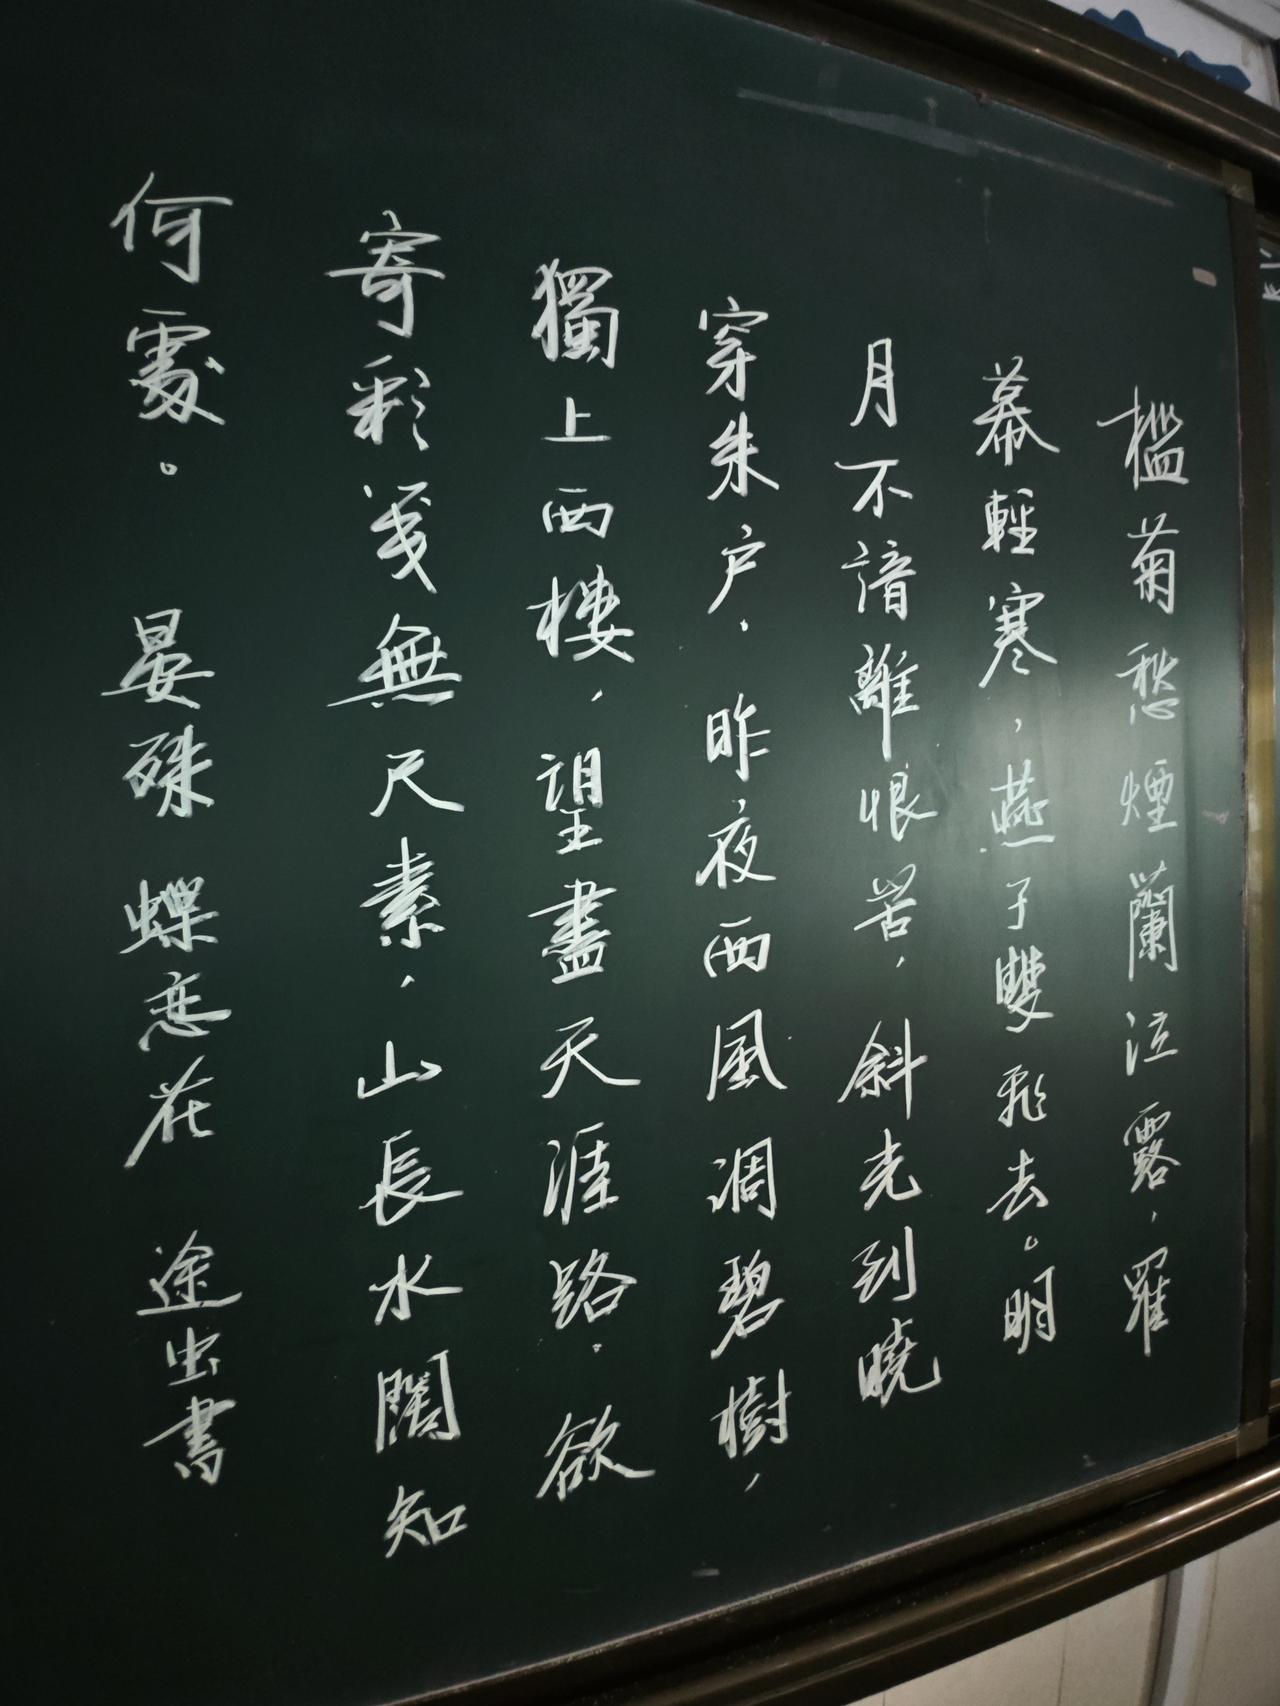 檻菊愁煙蘭泣露，羅
幕輕寒，燕子雙飛去。明
月不諳離恨苦，斜光到曉
穿朱户。昨夜西風凋碧樹，
獨上西樓，望盡天涯路。欲
寄彩箋無尺素，山長水闊知
何處。 晏殊 蝶恋花 途虫書